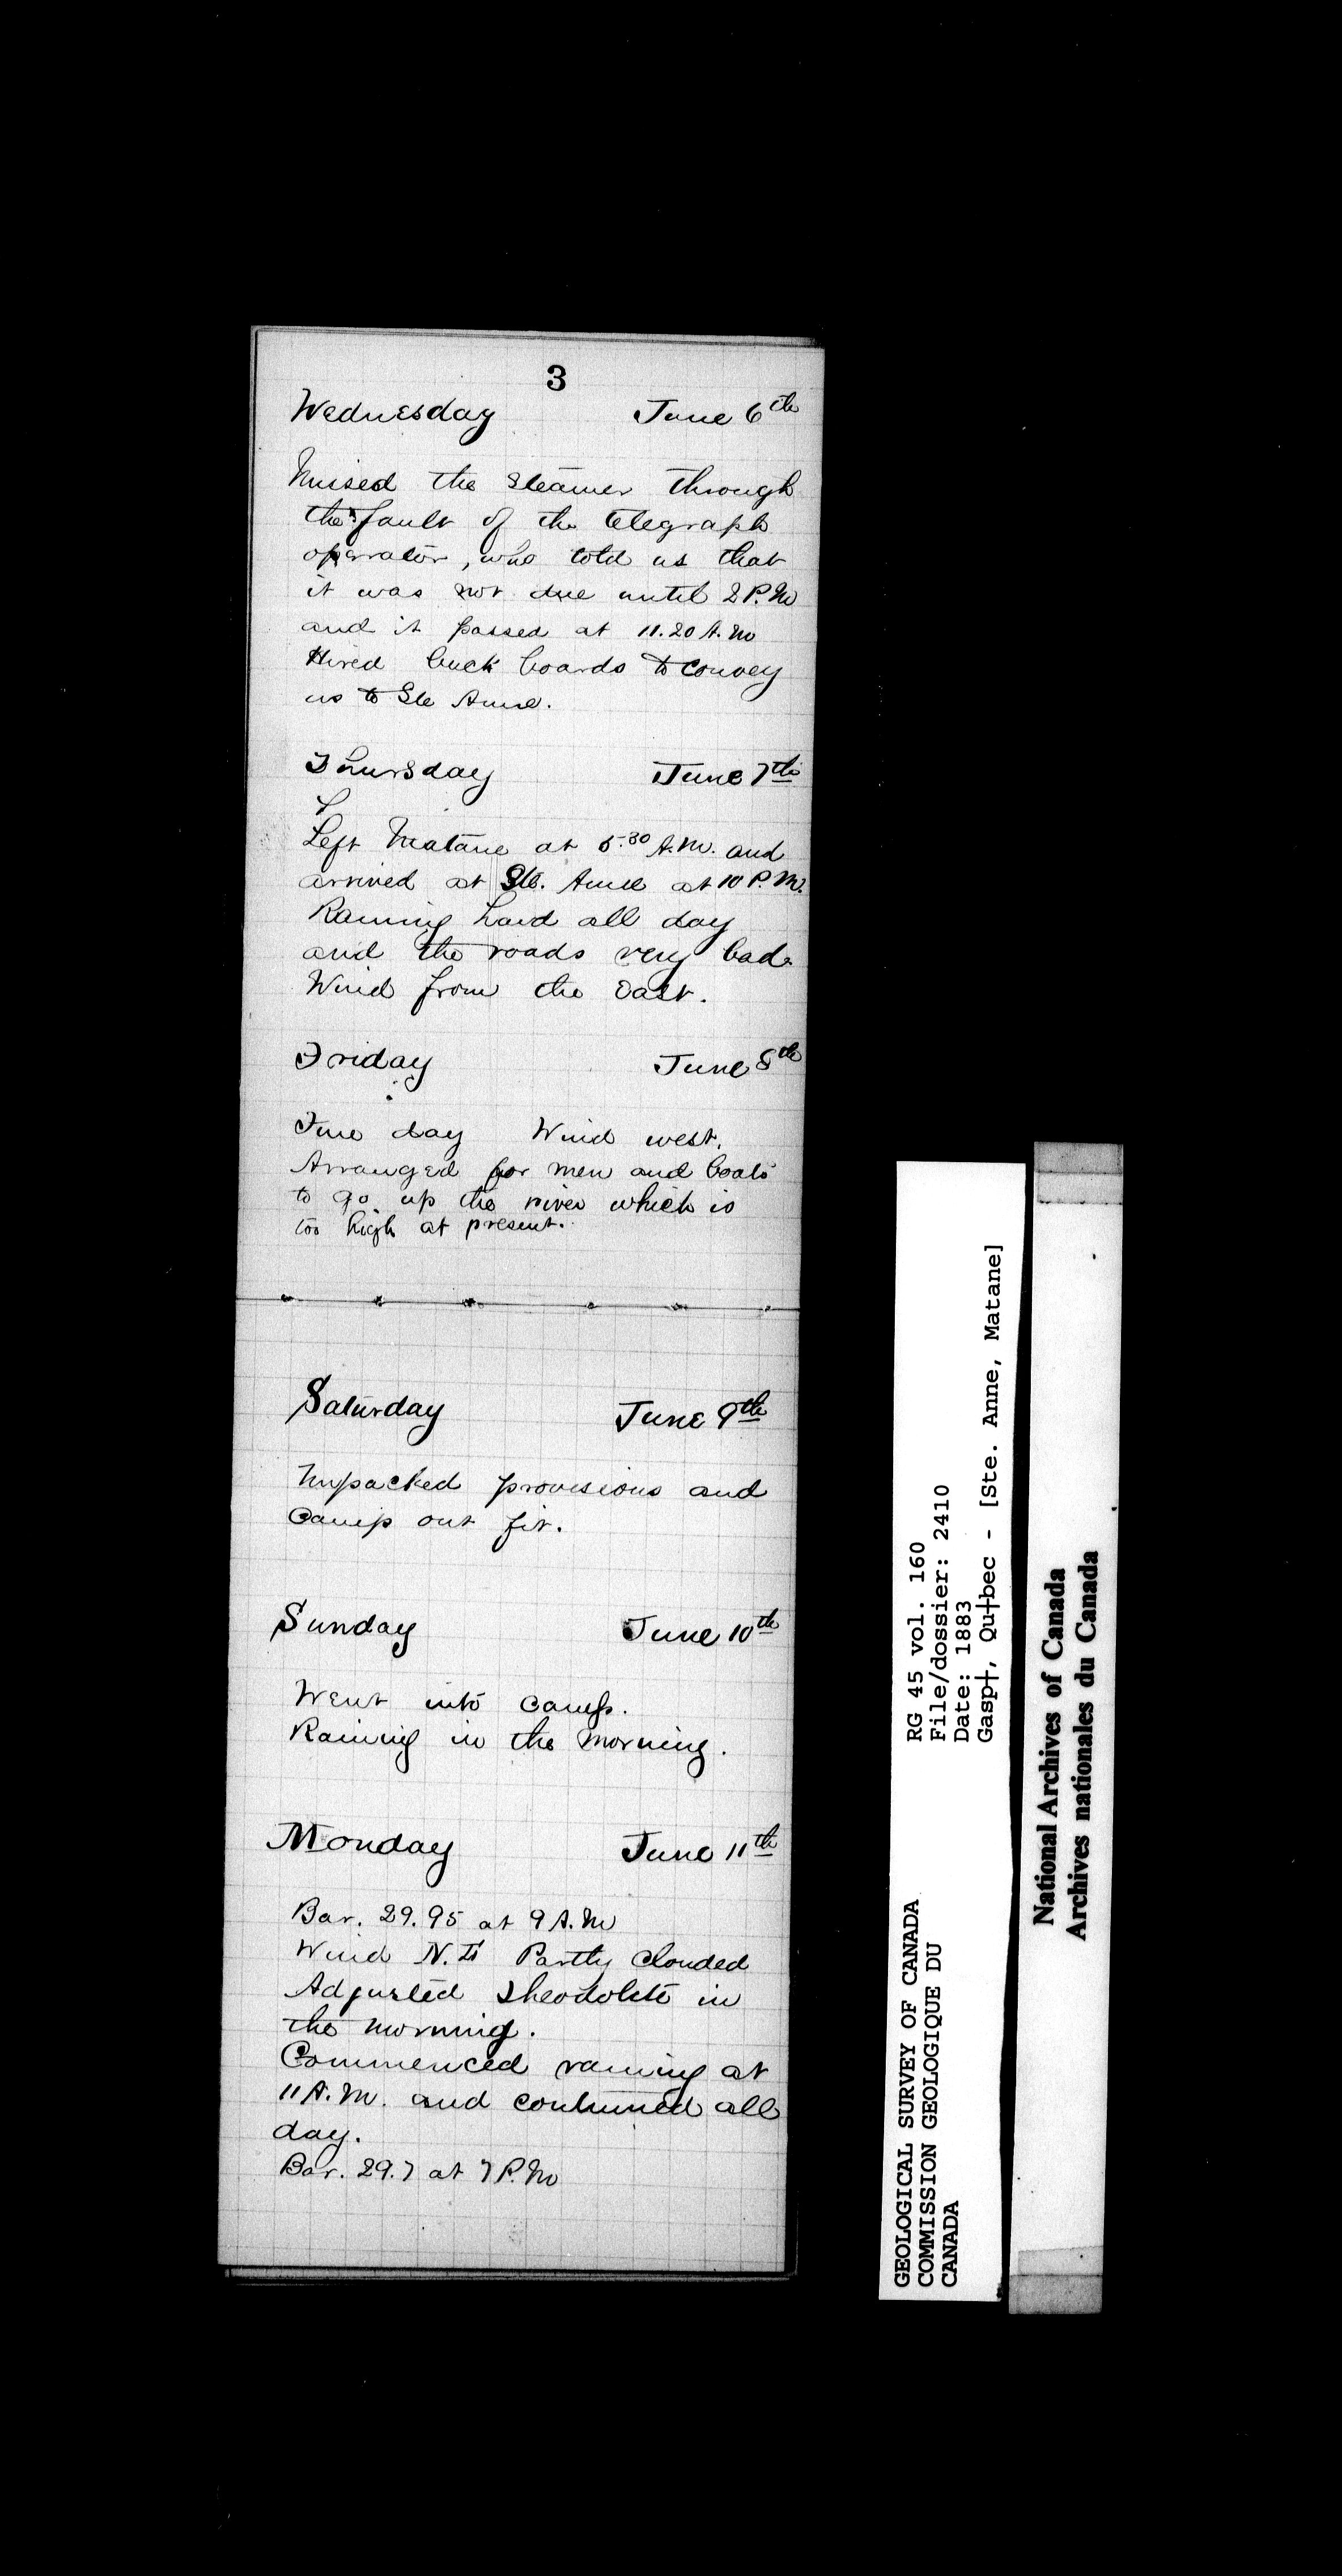 3
Wednesday June 6th
Missed the steamer through
the fault of the telegraph
operator, who told us that
it was not due until 2 P.M
and it passed at 11.20 A.M
Hired buck boards to convey
us to Ste Anne.
Thursday June 7th
Left Matane at 5.30 A.M. and
arrived at Ste. Anne at 10 P.M.
Raining hard all day
and the roads very bad.
Wind from the East.
Friday June 8th
Fine day Wind west.
Arranged for men and boats
to go up the river which is
too high at present.
Saturday June 9th
Unpacked provisions and
Camp out fit.
Sunday June 10th
Went into camp.
Raining in the morning.
Monday June 11th
Bar. 29.95 at 9 A.M
Wind N.E Partly Clouded
Adjusted Theodolite in
the morning.
Commenced raining at
11 A.M. and continued all
day.
Bar. 29.7 at 7 P.M
GEOLOGICAL SURVEY OF CANADA
COMMISSION GEOLOGIQUE DU
CANADA
RG 45 vol. 160
File/dossier: 2410
Date: 1883
Gasp†, Qu†bec - [Ste. Anne, Matane]
National Archives of Canada
Archives nationales du Canada